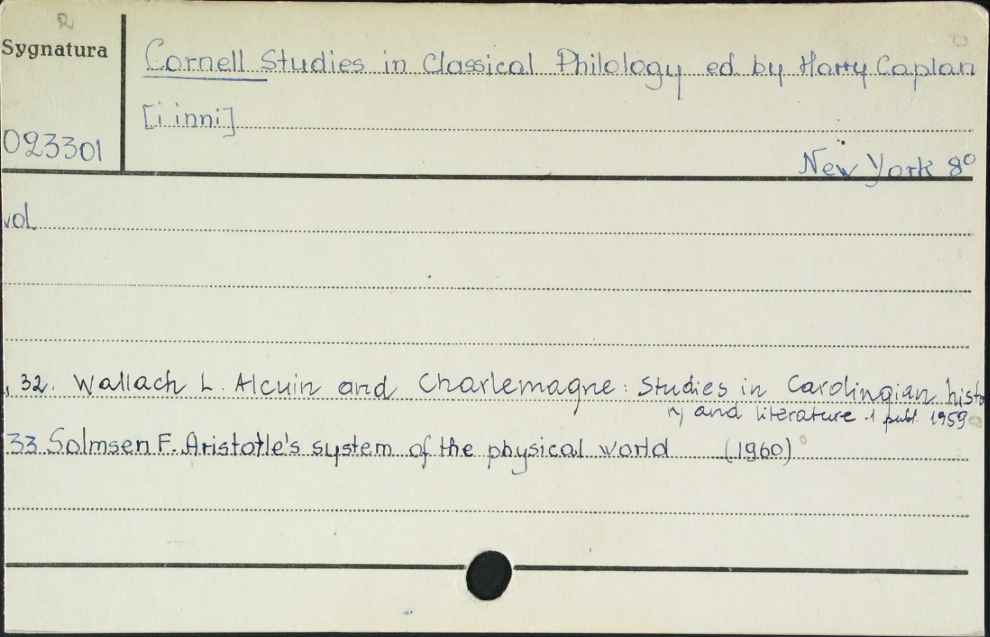 Sygnatura
Cornell Studies in Classical Philology ed by Harry Caplan
[i inni]
023301
New York 8°
vol
, 32. Wallach L. Alcuin and Charlemagne: Studies in Carolingian histo
ry and literature 1 publ. 1959
33 Solmsen F. Aristotle's system of the physical world (1960)